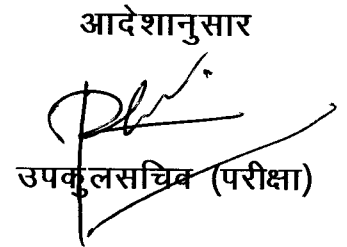 आदेशानुसार
उपकुलसचिव (परीक्षा)